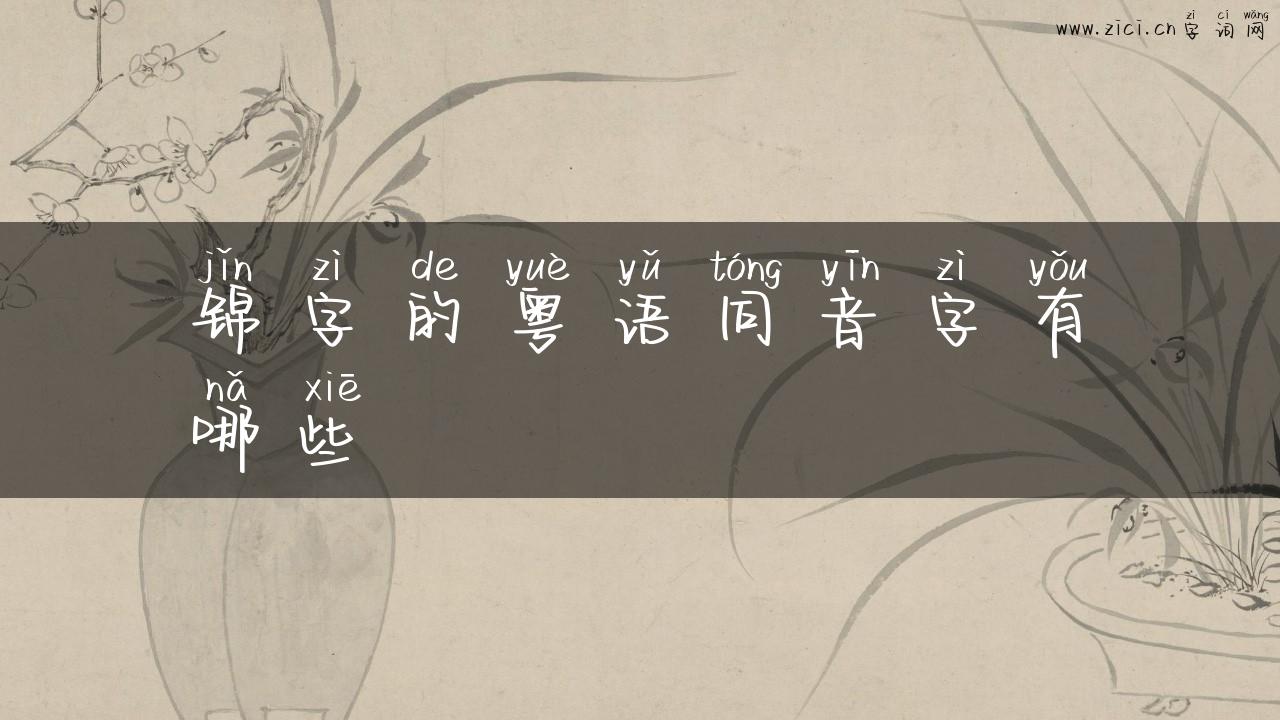 zì cí wǎng
www.zici.cn 字词网
jǐn zì de yuè yǔ tóng yīn zì yǒu
锦字的粤语同音字有
nǎ xiē
哪些